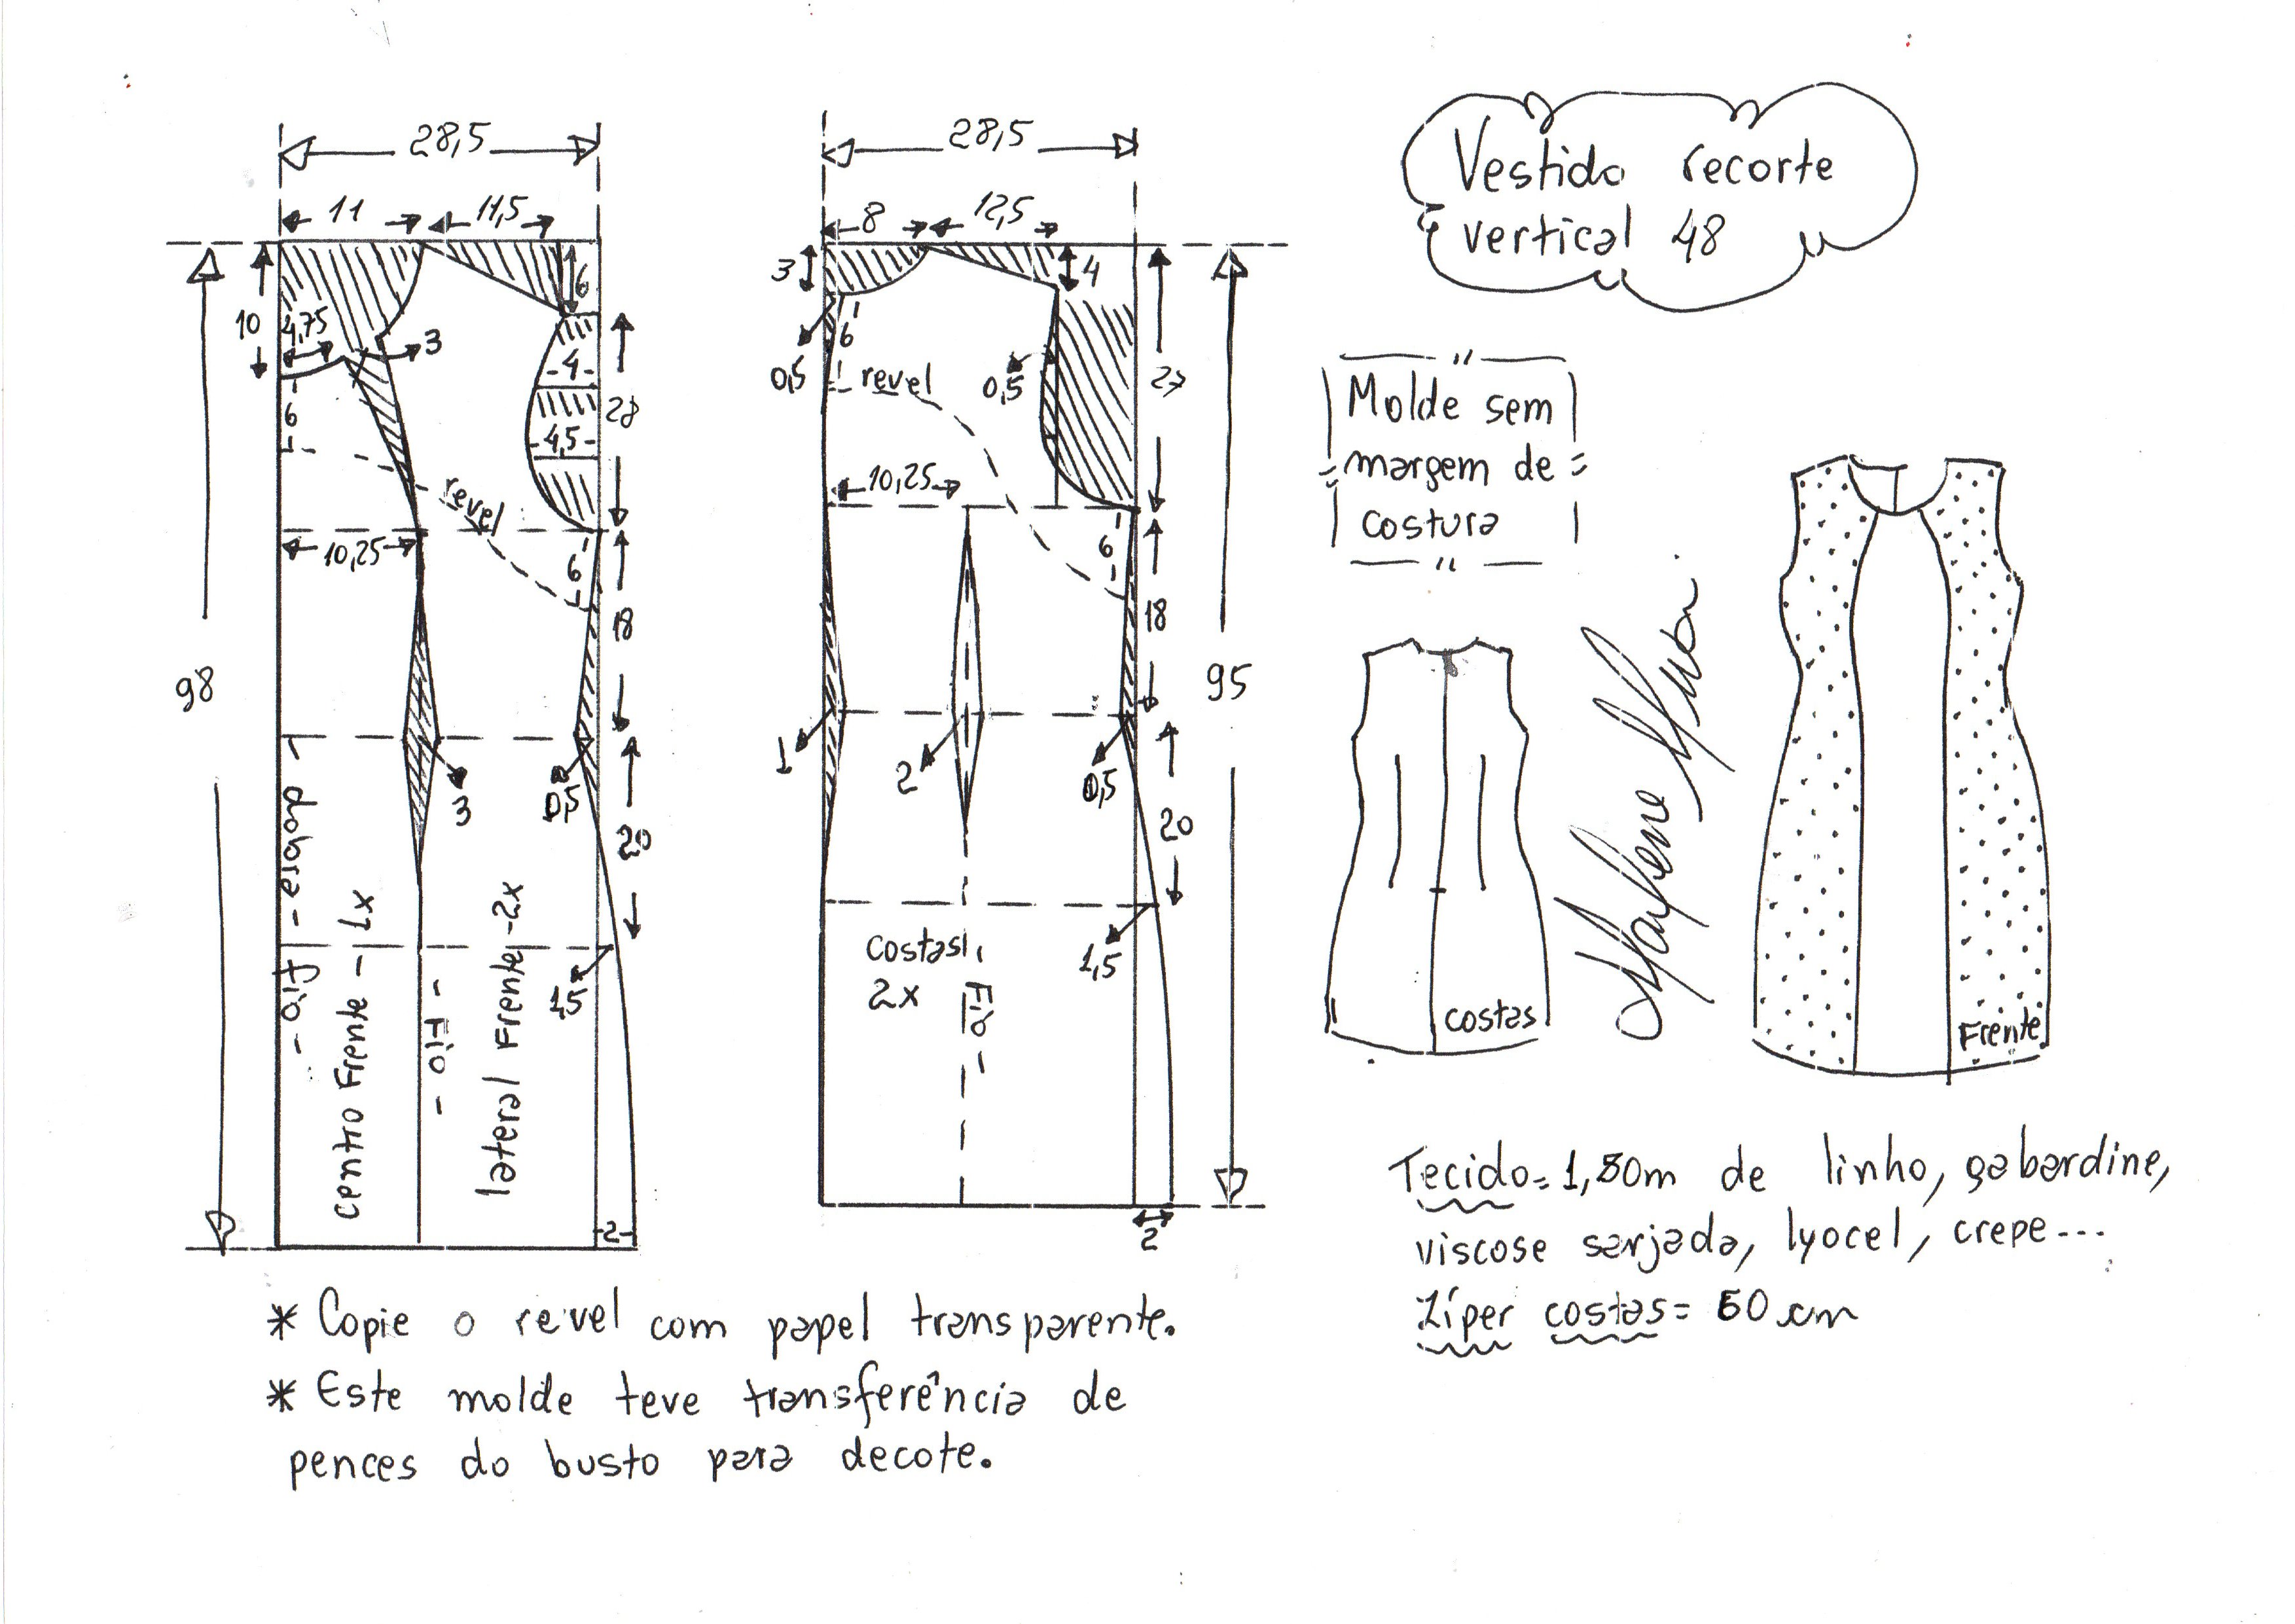 28,5
11
11,5
6
10
4,75
3
4
28
4,5
6
revel
10,25
6
18
98
3
0,5
20
dobra - fio -
centro Frente - 1x
- Fio -
lateral Frente - 2x
1,5
2
28,5
8
12,5
3
4
6
0,5
revel
0,5
10,25
6
18
95
1
2
0,5
20
costas
2x
Fio -
1,5
2
Vestido recorte
vertical 48
Molde sem
margem de
costura
costas
Frente
Tecido = 1,80m de linho, gabardine,
viscose sarjada, lyocel, crepe...
Zíper costas = 60 cm
* Copie o revel com papel transparente.
* Este molde teve transferência de
pences do busto para decote.